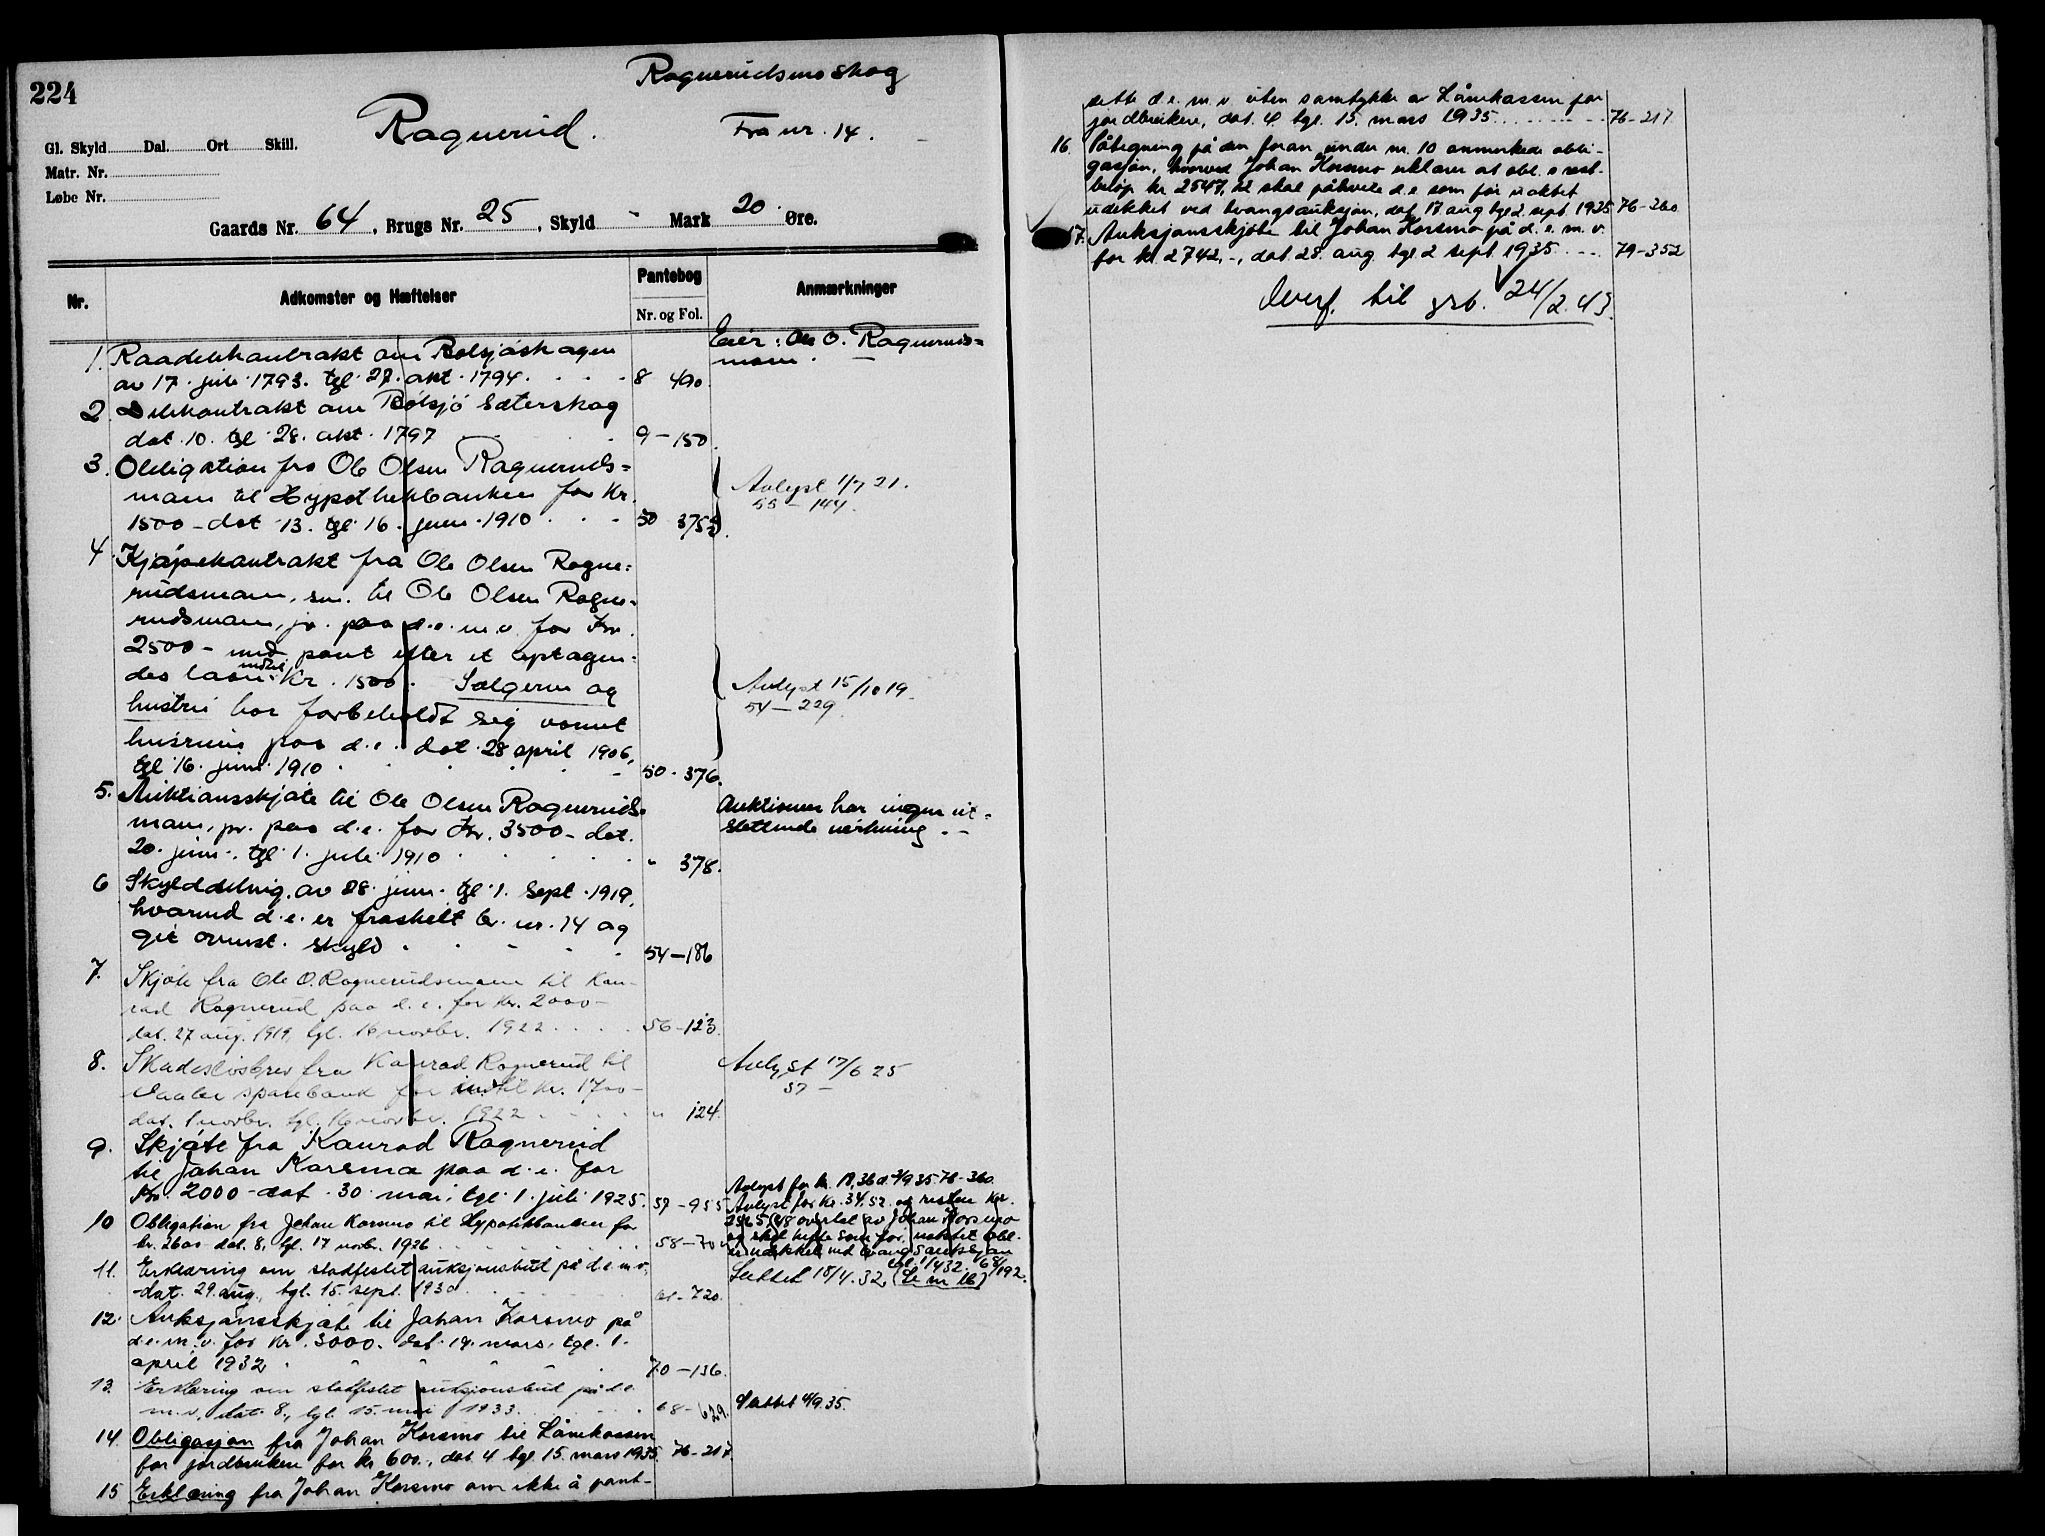 224
Rognerudsmoskog
Rognerud.
Fra nr. 14.
Gl. Skyld Dal. Ort Skill.
Matr. Nr.
Løbe Nr.
Gaards Nr. 64, Brugs Nr. 25, Skyld - Mark 20 Øre.
Nr.
Adkomster og Hæftelser
Pantebog
Nr. og Fol.
Anmærkninger
Eier: Ole O. Rogneruds=
moen.
1. Raadekontrakt om Bolsjøskogen
av 17. juli 1793. tgl. 27. okt. 1794. 8 490.
2. Delekontrakt om Bolsjø Sæterskog
dat. 10. tgl. 28. okt. 1797 9-150.
3. Obligation fra Ole Olsen Rogneruds=
moen til Hypothekbanken for Kr.
1500 - dat. 13. tgl. 16. juni 1910 50 375.
Avlyst 1/7 21.
55-144.
4. Kjøpekontrakt fra Ole Olsen Rogne=
rudsmoen, sen. til Ole Olsen Rogne=
rudsmoen, jr. paa d.e.m.v. for Kr.
2500 - med pant efter et optagen=
des laan indtil Kr. 1500. Sælgeren og
hustru har forbeholdt sig varmt
husrum paa d.e. dat. 28 april 1906,
tgl. 16. juni 1910 50-376.
Avlyst 15/10 19.
54-229.
5. Auktionsskjøte til Ole Olsen Rogneruds-
moen, jr. paa d.e. for Kr. 3500 - dat.
20. juni, tgl. 1. juli 1910 " 378.
Auktionen har ingen ut=
slettende virkning.
6 Skylddeling av 28. juni. tgl. 1. sept. 1919,
hvorved d.e. er fraskilt br. nr. 14 og
git ovennt. skyld 54-186
7. Skjøte fra Ole O. Rognerudsmoen til Kon-
rad Rognerud paa d.e. for kr. 2000-
dat. 27 aug. 1919, tgl. 16 novbr. 1922 56-123.
8. Skadesløsbrev fra Konrad Rognerud til
Vaaler sparebank for indtil kr. 1700-
dat. 1 novbr. tgl. 16 novbr. 1922 " 124.
Avlyst 17/6 25
57 -
9. Skjøte fra Konrad Rognerud
til Johan Korsmo paa d.e. for
Kr. 2000 - dat. 30. mai, tgl. 1. juli 1925. 57-955
10 Obligation fra Johan Korsmo til Hypotekbanken for
kr. 2600 - dat. 8, tgl. 17 novbr. 1926 58-70
Avlyst for kr. 18,36 d. 2/9 35 76-360.
Avlyst for kr. 34,52 og resten kr.
2565,48 overtat av Johan Korsmo
og skal hefte som før, uaktet obl.
er udekket ved tvangsauksjon
tgl. 1/4 32. 68/192.
11. Erklæring om stadfestet auksjonsbud på d.e.m.v.
dat. 29. aug., tgl. 15. sept. 1930 61-720.
Slettet 18/4.32. (Se nr 16)
12. Auksjonsskjøte til Johan Korsmo på
d.e.m.v. for kr. 3000. dat. 19. mars, tgl. 1.
april 1932 70-136.
13. Erklæring om stadfestet auksjonsbud på d.e.
m.v., dat. 8., tgl. 15. mai 1933. 68-629.
Slettet 4/9.35.
14. Obligasjon fra Johan Korsmo til Lånekassen
for jordbrukere for kr 600., dat. 4 tgl. 15. mars 1935. 76-217.
15 Erklæring fra Johan Korsmo om ikke å pant-
sette d.e.m.v. uten samtykke av Lånekassen for
jordbrukere, dat. 4. tgl. 15. mars 1935 76-217
16. Påtegning på den foran under nr. 10 anmerkede obli-
gasjon, hvorved Johan Korsmo erklærer at obl.s rest-
beløp kr. 2547,12 skal påhvile d.e. som før uaktet
udekket ved tvangsauksjon, dat. 17 aug tgl 2. sept. 1935 76-360
17. Auksjonsskjøte til Johan Korsmo på d.e.m.v.
for kr. 2742,-, dat. 28. aug. tgl 2 sept. 1935 79-352
Overf. til grb. 24/2.43.